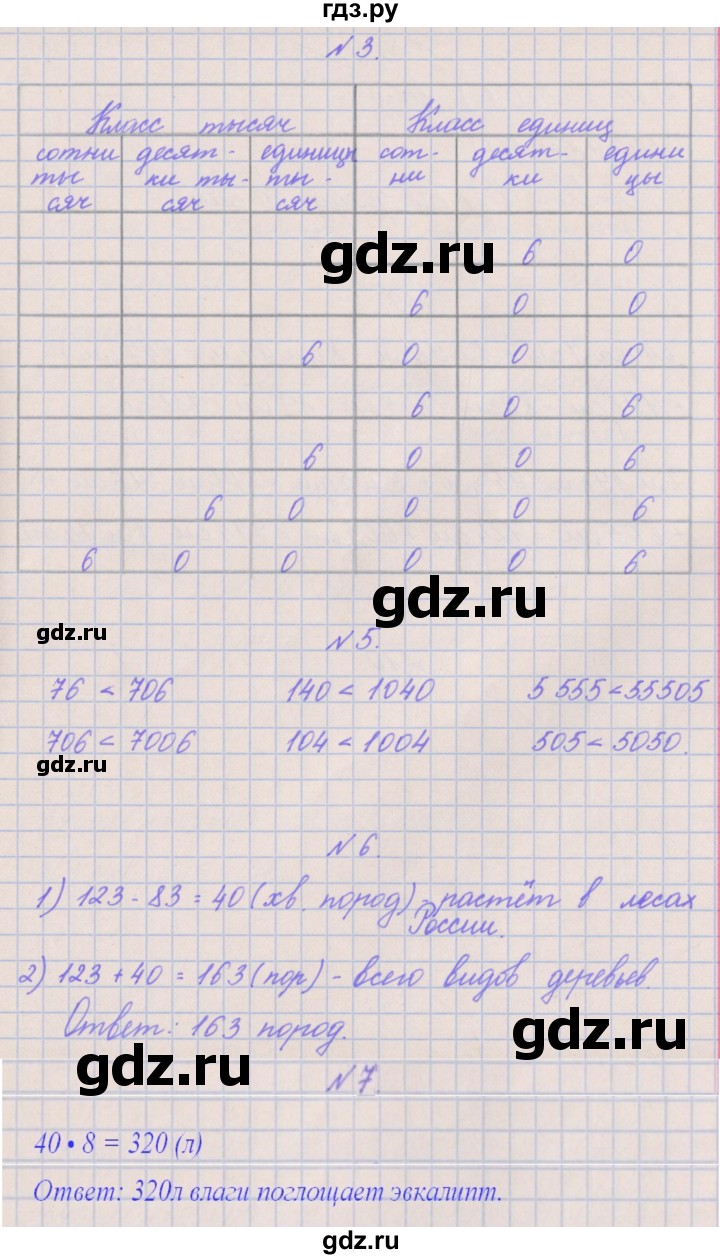 гдз.ру
№ 3.
Класс тысяч Класс единиц
сотни десят- единицы сот- десят- едини
ты ки ты- ты- ни ки цы
сяч сяч сяч
6 0
gdz.ru
6 0 0
6 0 0 0
6 0 6
6 0 0 6
6 0 0 0 6
6 0 0 0 0 6
gdz.ru
gdz.ru
№ 5.
76 < 706 140 < 1040 5 555 < 55505
706 < 7006 104 < 1004 505 < 5050.
gdz.ru
№ 6.
1) 123 - 83 = 40 (хв. пород) - растёт в лесах
России.
2) 123 + 40 = 163 (пор) - всего видов деревьев.
Ответ: 163 пород.
gdz.ru
gdz.ru
№ 7.
40 • 8 = 320 (л)
Ответ: 320л влаги поглощает эвкалипт.
gdz.ru